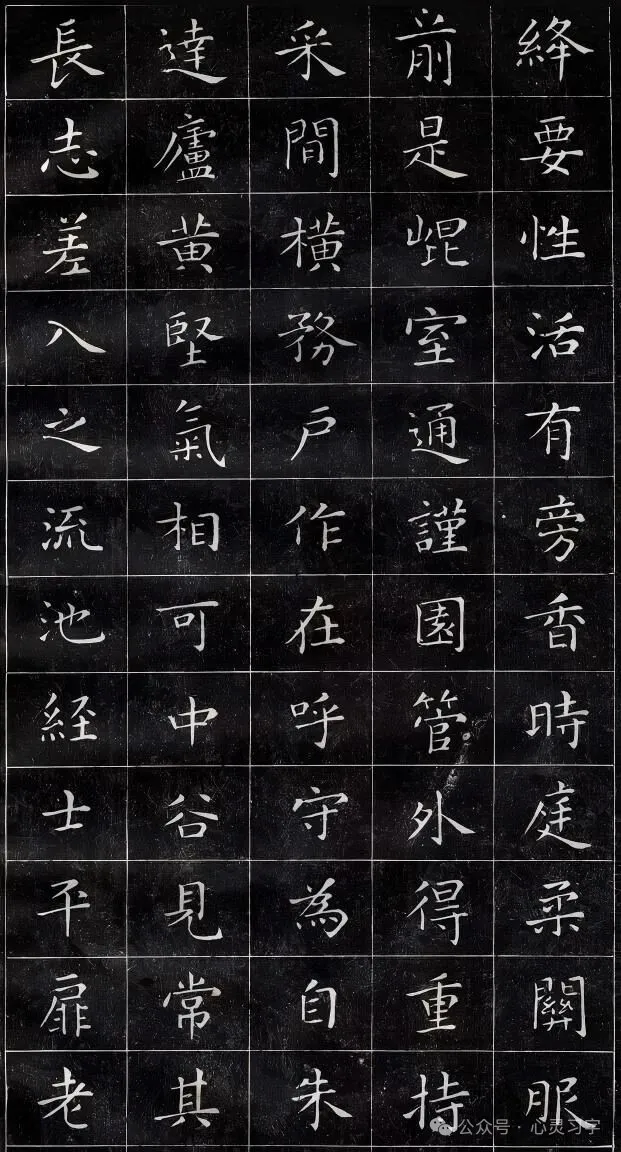 絳要性活有旁香時庭柔關服
前是崐室通謹園管外得重持
采間橫務戶作在呼守為自朱
達廬黃堅氣相可中谷見常其
長志差入之流池経士平扉老
公众号 · 心灵习字